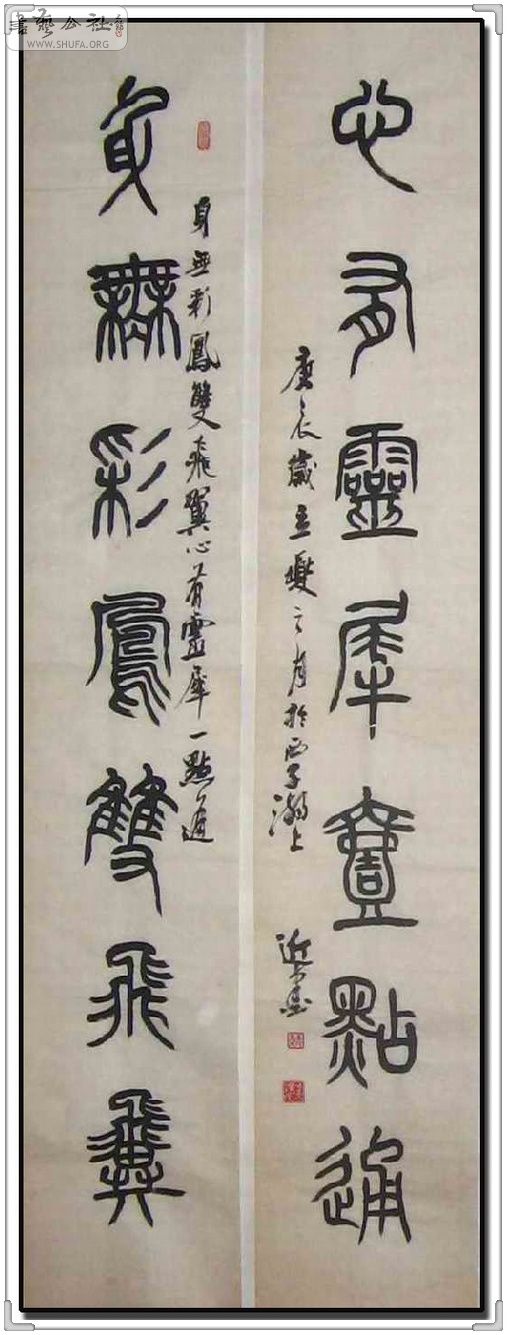 書藝公社
WWW.SHUFA.ORG
身無彩鳳雙飛翼
身無彩鳳雙飛翼心有靈犀一點通
心有靈犀壹點通
庚辰歲之月於西子湖上